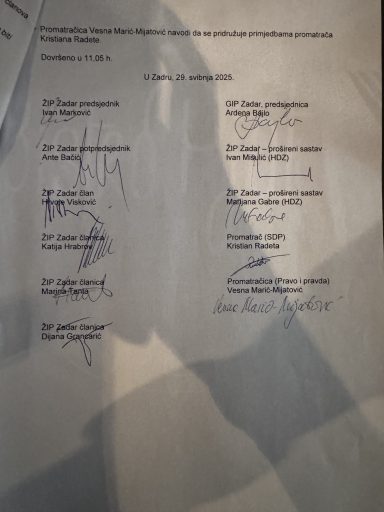 članova
biti
Promatračica Vesna Marić-Mijatović navodi da se pridružuje primjedbama promatrača
Kristiana Radete.
Dovršeno u 11,05 h.
U Zadru, 29. svibnja 2025.
ŽIP Zadar predsjednik
Ivan Marković
GIP Zadar, predsjednica
Ardena Bajlo
Bajlo
ŽIP Zadar potpredsjednik
Ante Bačić
ŽIP Zadar – prošireni sastav
Ivan Mišulić (HDZ)
ŽIP Zadar član
Hrvoje Visković
ŽIP Zadar – prošireni sastav
Marijana Gabre (HDZ)
ŽIP Zadar članica
Katija Hrabrov
Promatrač (SDP)
Kristian Radeta
ŽIP Zadar članica
Marina Tanta
Promatračica (Pravo i pravda)
Vesna Marić-Mijatović
Vesna Marić-Mijatović
ŽIP Zadar članica
Dijana Grancarić